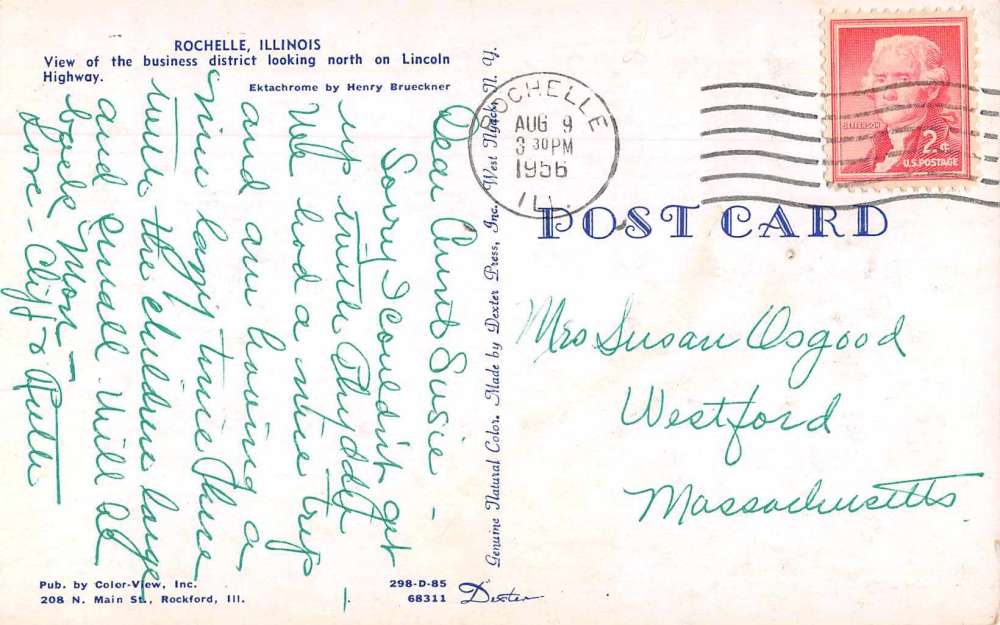 ROCHELLE, ILLINOIS
View of the business district looking north on Lincoln
Highway.
Ektachrome by Henry Brueckner
Dear Aunt Susie -
Sorry I couldn't get
up until
We had a nice trip
and am having a
nice lazy time there
with the children large
and small. Will be
back Mon -
Love - Cliff & Ruth
Pub. by Color-View, Inc.
208 N. Main St., Rockford, Ill.
298-D-85
68311
Dexter
Genuine Natural Color. Made by Dexter Press, Inc. West Nyack, N. Y.
ROCHELLE
AUG 9
3 30 PM
1956
ILL.
JEFFERSON
2¢
U.S. POSTAGE
POST CARD
Mrs Susan Osgood
Westford
Massachusetts